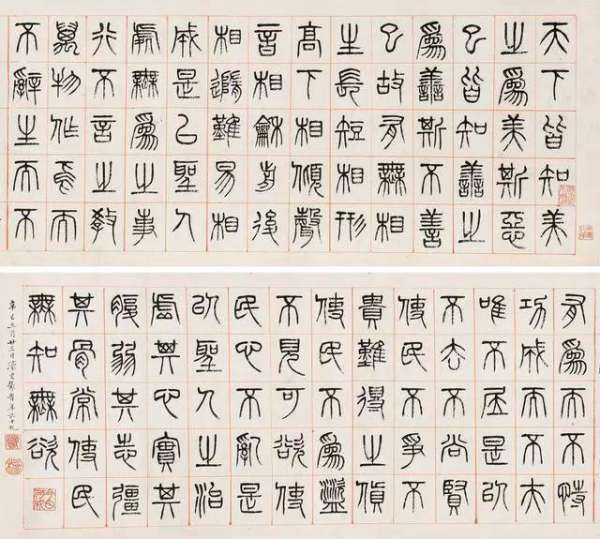 天下皆知美
之為美斯惡
已皆知善之
為善斯不善
已故有無相
生長短相形
高下相傾聲
音相龢前後
相隨難易相
成是以聖人
處無為之事
行不言之教
萬物作焉而
不辭生而不
有為而不恃
功成而不夫
唯不居是以
不去不尚賢
使民不爭不
貴難得之貨
使民不為盜
不見可欲使
民心不亂是
以聖人之治
虛其心實其
腹弱其志彊
其骨常使民
無知無欲
辛巳三月廿三日 年六十九